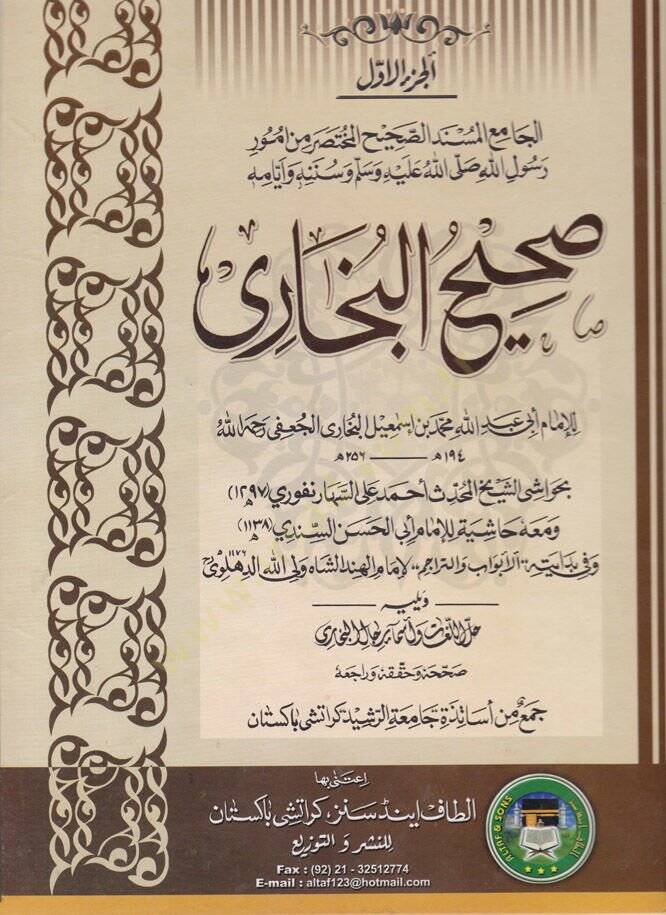 الجزء الاوّل
الجامع المسند الصحيح المختصر من امور
رسول الله صلّى الله عليه وسلّم وسننه وايّامه
صحيح البخارى
للإمام أبى عبد الله محمد بن إسمعيل البخارى الجعفى رحمه الله
١٩٤ھ ——— ٢٥٦ھ
بحواشى الشيخ المحدث أحمد على السهارنفوري (١٢٩٧ھ)
ومعه حاشية للإمام أبي الحسن السندي (١١٣٨ھ)
وفى بدايته "الأبواب والتراجم" لإمام الهند الشاه ولى الله الدهلوى ١١٧٦ھ
ويليه
حل اللغات وأسماء رجال البخارى
صححه وحققه وراجعه
جمع من أساتذة جامعة الرشيد كراتشى باكستان
اعتنى بها
الطاف اينڈ سنز، كراتشى باكستان
للنشر والتوزيع
Fax : (92) 21 - 32512774
E-mail : altaf123@hotmail.com
ALTAF & SONS